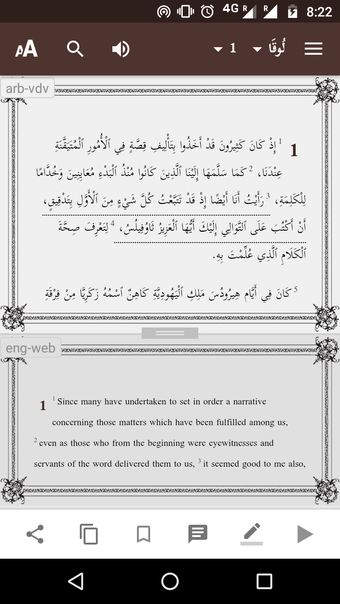 4G R R 8:22
AA 1 لُوقَا
arb-vdv
1 ¹ إِذْ كَانَ كَثِيرُونَ قَدْ أَخَذُوا بِتَأْلِيفِ قِصَّةٍ فِي ٱلْأُمُورِ ٱلْمُتَيَقَّنَةِ
عِنْدَنَا، ² كَمَا سَلَّمَهَا إِلَيْنَا ٱلَّذِينَ كَانُوا مُنْذُ ٱلْبَدْءِ مُعَايِنِينَ وَخُدَّامًا
لِلْكَلِمَةِ، ³ رَأَيْتُ أَنَا أَيْضًا إِذْ قَدْ تَتَبَّعْتُ كُلَّ شَيْءٍ مِنَ ٱلْأَوَّلِ بِتَدْقِيقٍ،
أَنْ أَكْتُبَ عَلَى ٱلتَّوَالِي إِلَيْكَ أَيُّهَا ٱلْعَزِيزُ ثَاوُفِيلُسُ، ⁴ لِتَعْرِفَ صِحَّةَ
ٱلْكَلَامِ ٱلَّذِي عُلِّمْتَ بِهِ.
⁵ كَانَ فِي أَيَّامِ هِيرُودُسَ مَلِكِ ٱلْيَهُودِيَّةِ كَاهِنٌ ٱسْمُهُ زَكَرِيَّا مِنْ فِرْقَةِ
eng-web
1 ¹ Since many have undertaken to set in order a narrative
concerning those matters which have been fulfilled among us,
² even as those who from the beginning were eyewitnesses and
servants of the word delivered them to us, ³ it seemed good to me also,